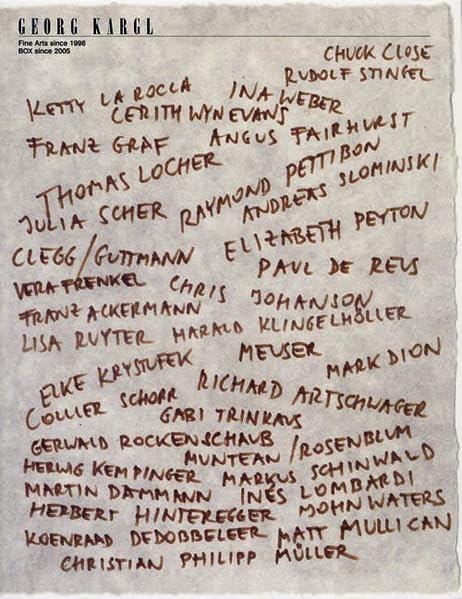 GEORG KARGL
Fine Arts since 1998
BOX since 2005
CHUCK CLOSE
RUDOLF STINGEL
KETTY LA ROCCA INA WEBER
CERITH WYN EVANS
FRANZ GRAF ANGUS FAIRHURST
THOMAS LOCHER RAYMOND PETTIBON
JULIA SCHER ANDREAS SLOMINSKI
CLEGG/GUTTMANN ELIZABETH PEYTON
VERA FRENKEL CHRIS JOHANSON PAUL DE REUS
FRANZ ACKERMANN
LISA RUYTER HARALD KLINGELHÖLLER
ELKE KRYSTUFEK MEUSER MARK DION
COLLIER SCHORR RICHARD ARTSCHWAGER
GABI TRINKAUS
GERWALD ROCKENSCHAUB
MUNTEAN/ROSENBLUM
HERWIG KEMPINGER MARKUS SCHINWALD
MARTIN DAMMANN INÉS LOMBARDI
HERBERT HINTEREGGER JOHN WATERS
KOENRAAD DEDOBBELEER MATT MULLICAN
CHRISTIAN PHILIPP MÜLLER